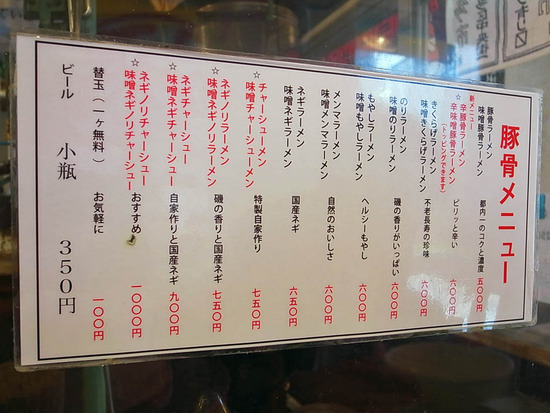 豚骨メニュー
豚骨ラーメン
味噌豚骨ラーメン
都内一のコクと濃度 五〇〇円
新メニュー
☆辛豚骨ラーメン
辛味噌豚骨ラーメン
(トッピングできます)
ピリッと辛い 六〇〇円
きくらげラーメン
味噌きくらげラーメン
不老長寿の珍味 六〇〇円
のりラーメン
味噌のりラーメン
磯の香りがいっぱい 六〇〇円
もやしラーメン
味噌もやしラーメン
ヘルシーもやし 六〇〇円
メンマラーメン
味噌メンマラーメン
自然のおいしさ 六〇〇円
ネギラーメン
味噌ネギラーメン
国産ネギ 六五〇円
チャーシューメン
☆味噌チャーシューメン
特製自家作り 七五〇円
ネギノリラーメン
☆味噌ネギノリラーメン
磯の香りと国産ネギ 七五〇円
ネギチャーシュー
☆味噌ネギチャーシュー
自家作りと国産ネギ 九〇〇円
ネギノリチャーシュー
☆味噌ネギノリチャーシュー
おすすめ 一〇〇〇円
替玉(一ヶ無料) お気軽に 一〇〇円
ビール 小瓶 350円